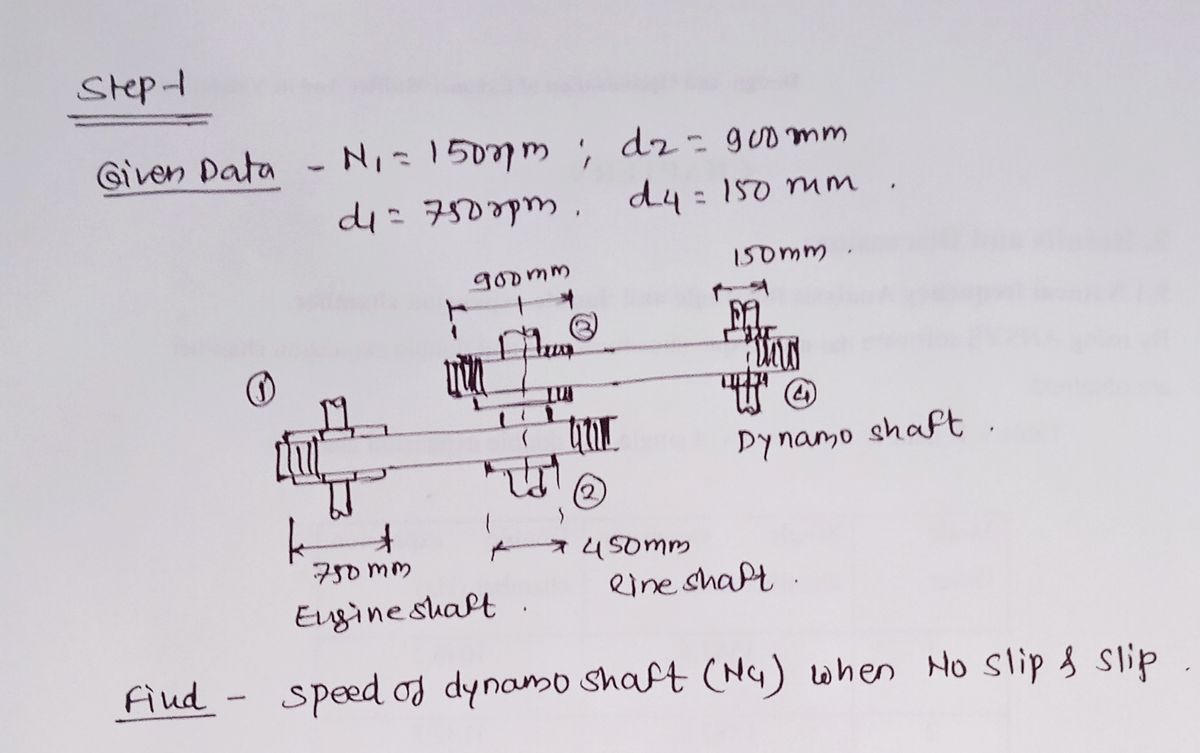 Step-1
Given Data - N1 = 150rpm ; d2 = 900mm
d1 = 750rpm. d4 = 150 mm.
900mm
150mm.
③
①
④
Dynamo shaft.
②
450mm
750 mm
line shaft.
Engine shaft.
Find - speed of dynamo shaft (N4) when No slip & slip.